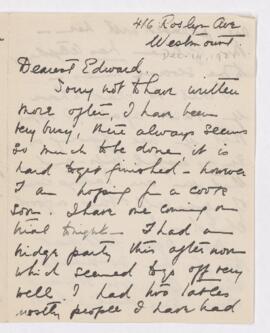 416 Roslyn Ave
Westmount.
Dearest Edward,
Sorry not to have written
more often, I have been
very busy, there always seems
so much to be done, it is
hard to get finished – however
I am hoping for a cook
soon. I have one coming on
trial tonight – I had a
bridge party this afternoon
which seemed to go off very
well I had two tables
mostly people I have had